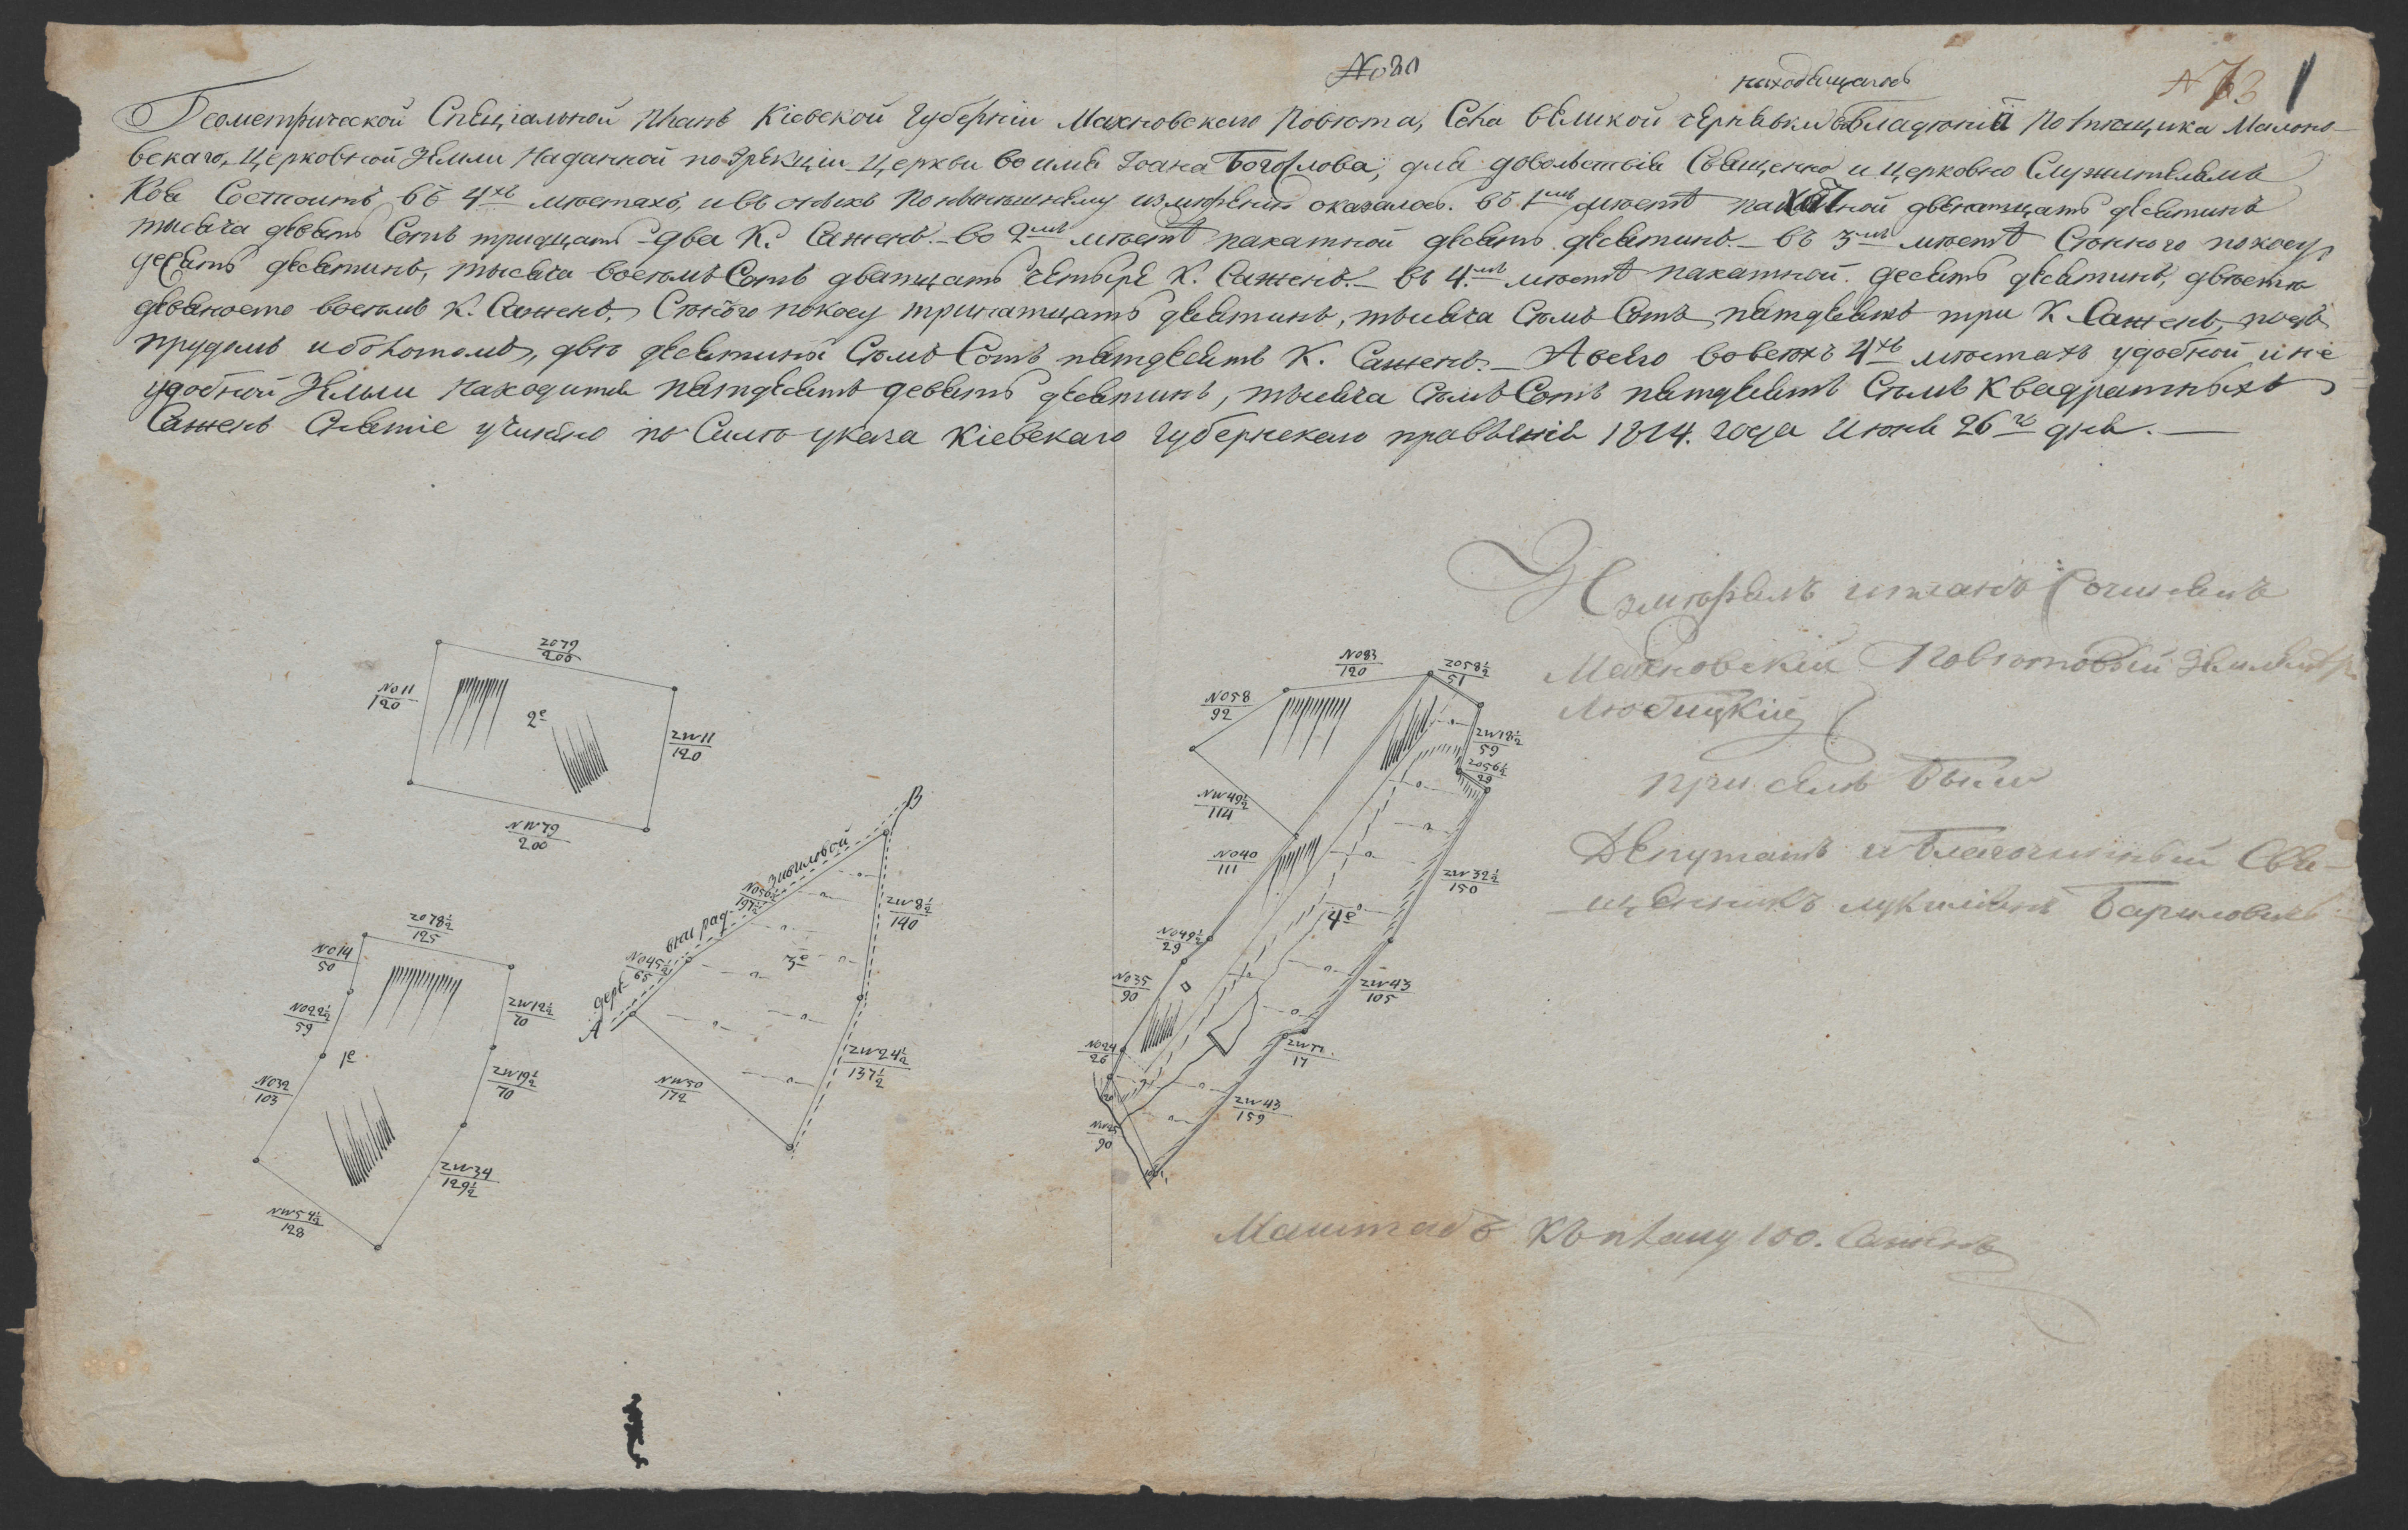 № 80
находящагось
№ 73 1
Геометрической Специальной планъ Кіевской Губерніи Махновского Повѣта, Села Великой чернявки въ Владѣніи Помѣщика Малено-
вскаго, Церковной Земли Наданной по Эрекціи Церкви во имя Іоана Богослова, для довольствія Священно и Церковно Служителямъ
Коя Состоитъ въ 4хъ мѣстахъ, и въ оныхъ По нынѣшнему измѣренію оказалось. въ 1мъ мѣстѣ пахатной двѣнатцать десятинъ
тысяча девять Сотъ тридцать два К. Сажень. во 2мъ мѣстѣ пахатной десять десятинъ. въ 3мъ мѣстѣ Сѣнного покосу
десять десятинъ, тысяча восемъ Сотъ дватцать четыре К. Сажень. въ 4мъ мѣстѣ пахатной десять десятинъ, двѣстѣ
девяносто восемъ К. Сажень, Сѣнного покосу тринатцать десятинъ, тысяча Семъ Сотъ пятдесятъ три К. Сажень, подъ
прудомъ и болотомъ, двѣ десятины Семъ Сотъ пятдесятъ К. Сажень. А всего во всехъ 4хъ мѣстахъ удобной и не
удобной Земли Находится пятдесятъ девять десятинъ, тысяча Семъ Сотъ пятдесятъ Семъ Квадратныхъ
Сажень Снятіе учинѣно по Силѣ указа Кіевскаго Губернскаго правленія 1824. года Июня 26го дня.
Измѣрялъ и планъ Сочинялъ
Махновскій Повѣтовый Землемѣръ
Любицкій
при семъ были
Депутатъ и Благочинный Свя-
щенникъ Бариловичъ
ZO79
200
NO11
120
2е
ZW11
120
NW79
200
ZO78½
125
NO14
50
NO22½
59
1е
NO32
103
ZW12½
70
ZW19½
70
ZW34
129½
NW54½
128
В
NO56½
197½
NO45½
65
А
3е
ZW8½
140
ZW24½
137½
NW50
172
NO83
120
ZO58½
51
NO58
92
ZW18½
59
ZO56½
29
NW49½
114
NO40
111
ZW32½
150
4е
NO49½
29
NO35
90
ZW43
105
NO24
26
17
ZW43
159
90
Машт​абъ Къ плану 100. Сажень